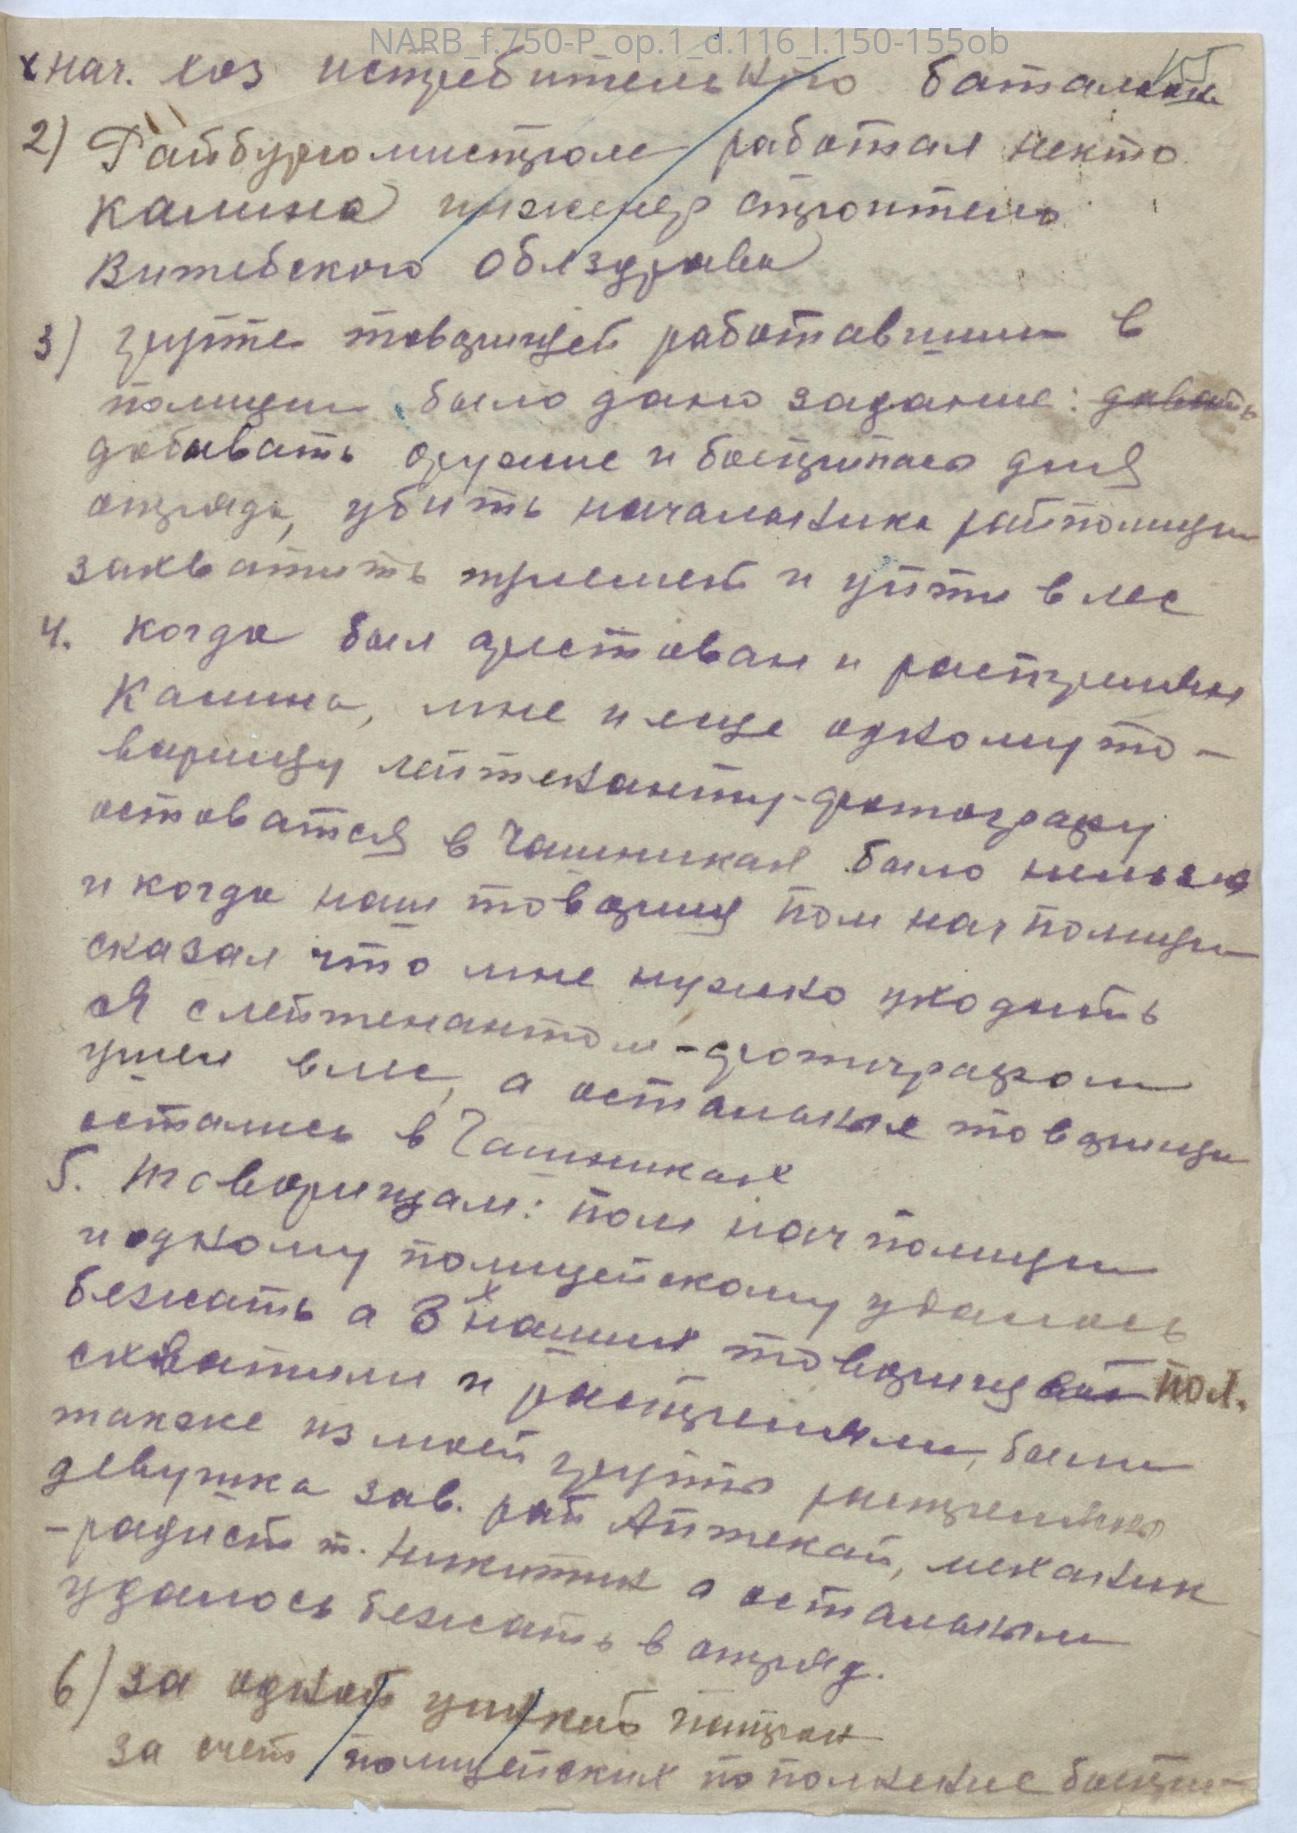 NARB_f.750-P_op.1_d.116_l.150-155ob
155
х нач. хоз истребительного баталиона
2) Райбургомистром работал некто
Калина инженер строитель
Витебского Облздрава
3) группе товарищей работавшим в
полиции было дано задание: давать
добывать оружие и боеприпасы для
отряда, убить начальника райполиции
захватить трофей и уйти в лес
4. Когда был арестован и растрелян
Калина, мне и еще одному то-
варищу лейтенанту-фотографу
оставатся в Чашниках было нельзя
и когда наш товарищ пом нач полиции
сказал что мне нужно уходить
Я с лейтенантом-фотографом
ушел в лес, а остальные товарищи
остались в Чашниках
5. Товарищам: пом нач полиции
и одному полицейскому удалось
бежать а 3х наших товарищей пол.
схватили и растреляли, были
также из моей групы растреляны
девушка зав. рай Аптекай, механик
-радист т. Никитин а остальным
удалось бежать в отряд.
6) За одной упаковкой патрон
за счет полицейских пополнение боепри-